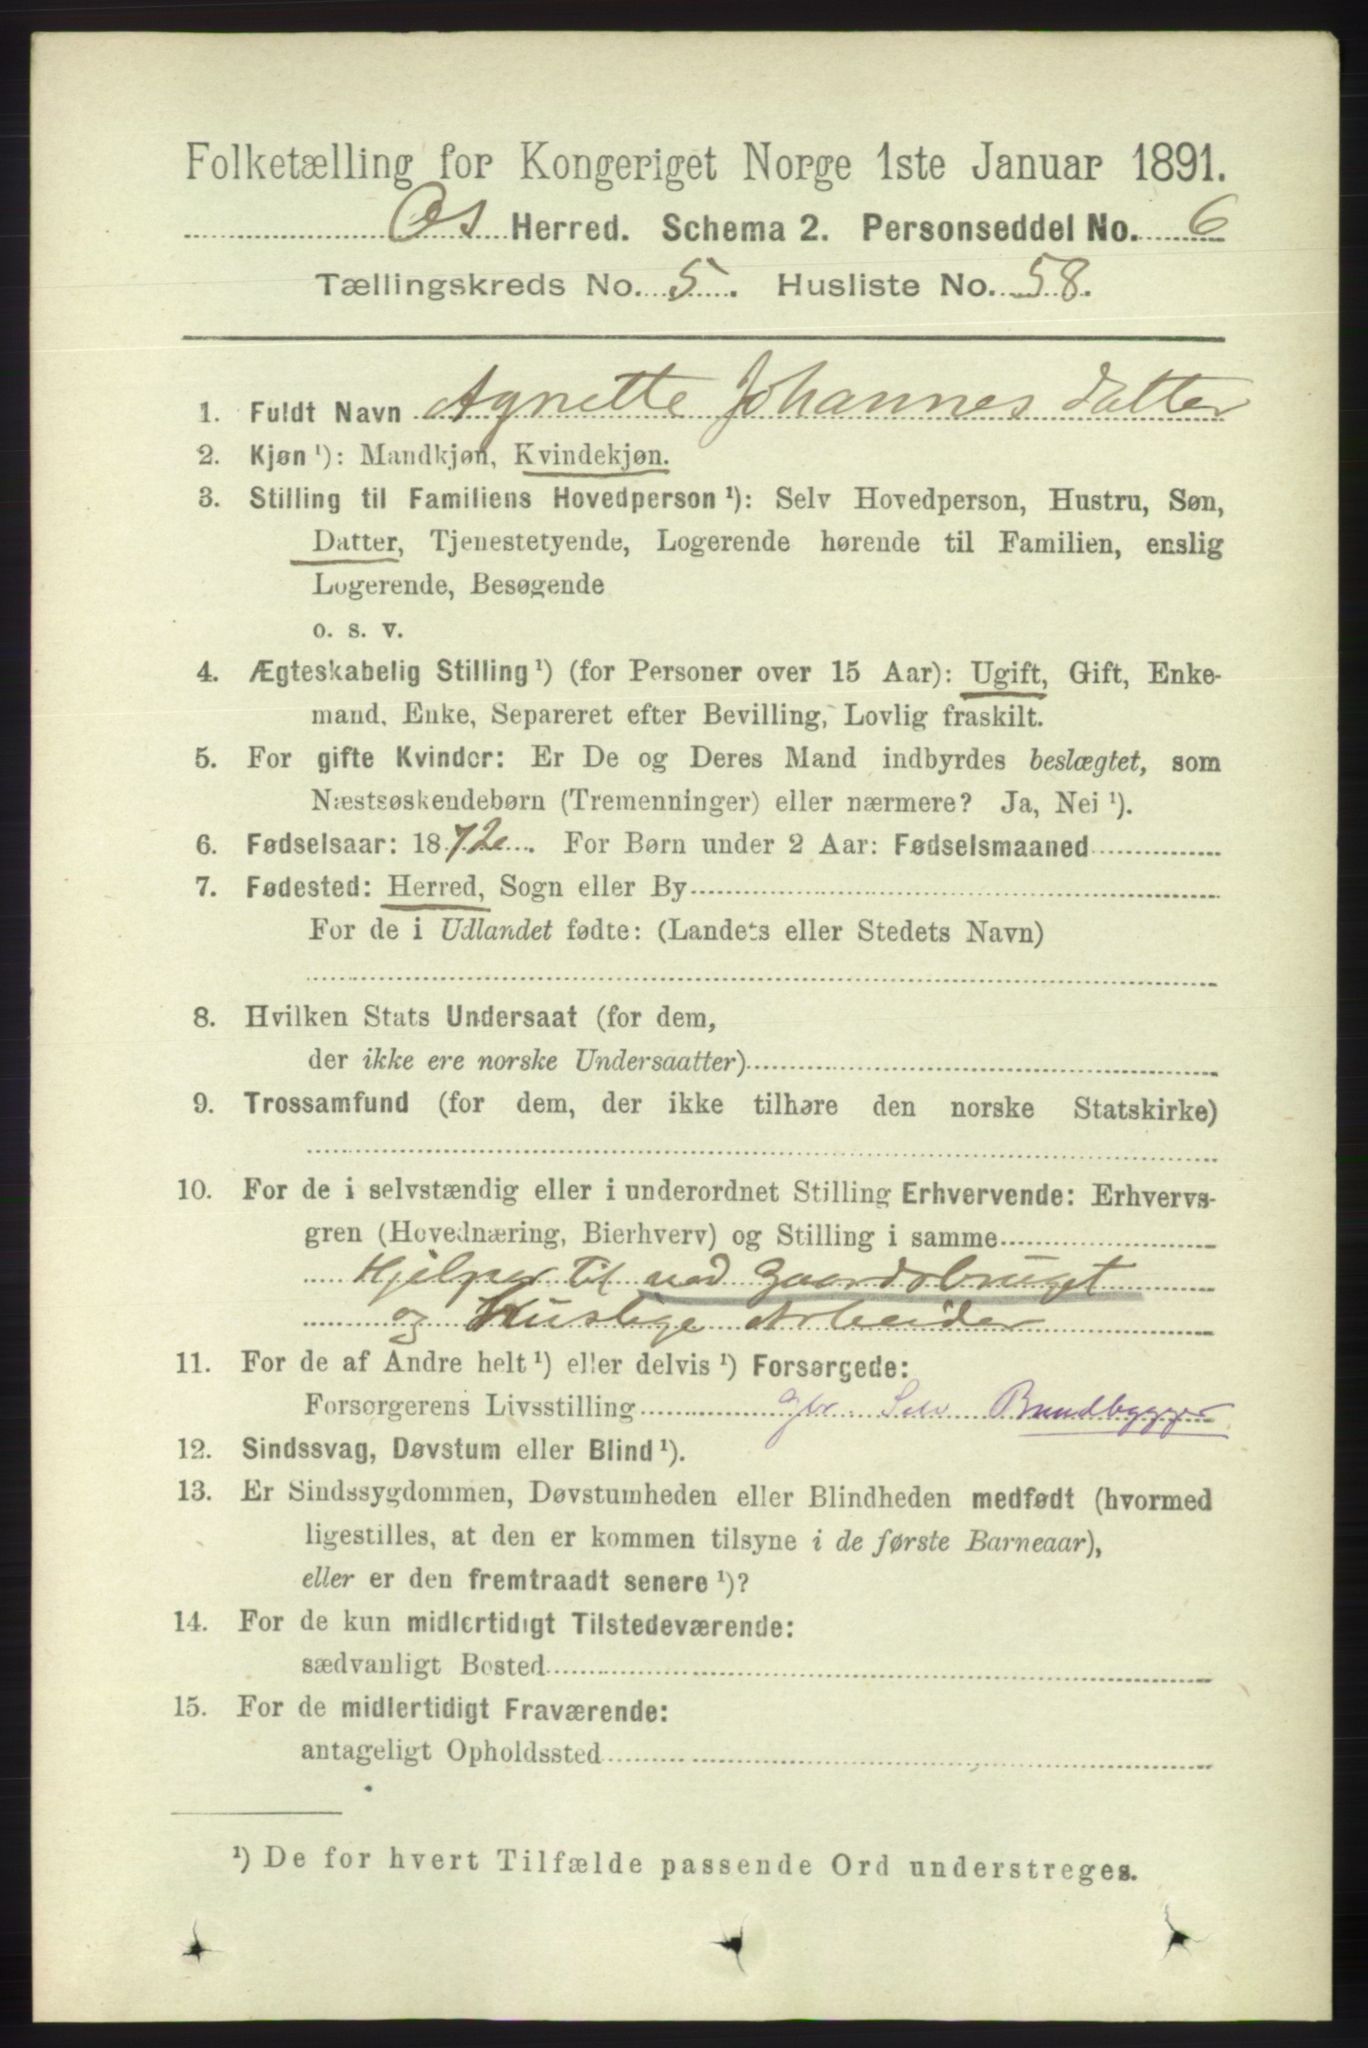 Folketælling for Kongeriget Norge 1ste Januar 1891.
Os Herred. Schema 2. Personseddel No. 6
Tællingskreds No. 5. Husliste No. 58.
1. Fuldt Navn Agnette Johannesdatter
2. Kjøn ¹): Mandkjøn, Kvindekjøn.
3. Stilling til Familiens Hovedperson ¹): Selv Hovedperson, Hustru, Søn,
Datter, Tjenestetyende, Logerende hørende til Familien, enslig
Logerende, Besøgende
o. s. v.
4. Ægteskabelig Stilling ¹) (for Personer over 15 Aar): Ugift, Gift, Enke-
mand, Enke, Separeret efter Bevilling, Lovlig fraskilt.
5. For gifte Kvinder: Er De og Deres Mand indbyrdes beslægtet, som
Næstsøskendebørn (Tremenninger) eller nærmere? Ja, Nei ¹).
6. Fødselsaar: 1872. For Børn under 2 Aar: Fødselsmaaned
7. Fødested: Herred, Sogn eller By
For de i Udlandet fødte: (Landets eller Stedets Navn)
8. Hvilken Stats Undersaat (for dem,
der ikke ere norske Undersaatter)
9. Trossamfund (for dem, der ikke tilhøre den norske Statskirke)
10. For de i selvstændig eller i underordnet Stilling Erhvervende: Erhvervs-
gren (Hovednæring, Bierhverv) og Stilling i samme
Hjelper til ved Gaardsbruget
og Huslige Arbeider
11. For de af Andre helt ¹) eller delvis ¹) Forsørgede:
Forsørgerens Livsstilling gbr. Selv
12. Sindssvag, Døvstum eller Blind ¹).
13. Er Sindssygdommen, Døvstumheden eller Blindheden medfødt (hvormed
ligestilles, at den er kommen tilsyne i de første Barneaar),
eller er den fremtraadt senere ¹)?
14. For de kun midlertidigt Tilstedeværende:
sædvanligt Bosted
15. For de midlertidigt Fraværende:
antageligt Opholdssted
¹) De for hvert Tilfælde passende Ord understreges.